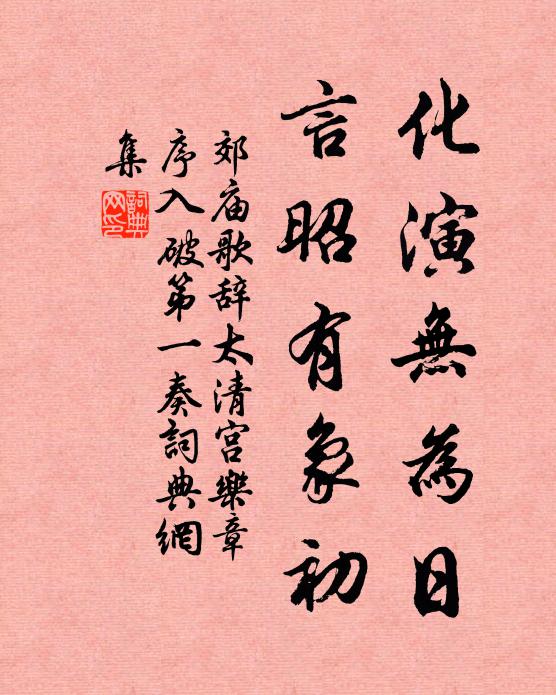 化演無為日
言昭有象初
郊庙歌辞太清宫樂章
序入破第一奏詞典網
集
詞典网印